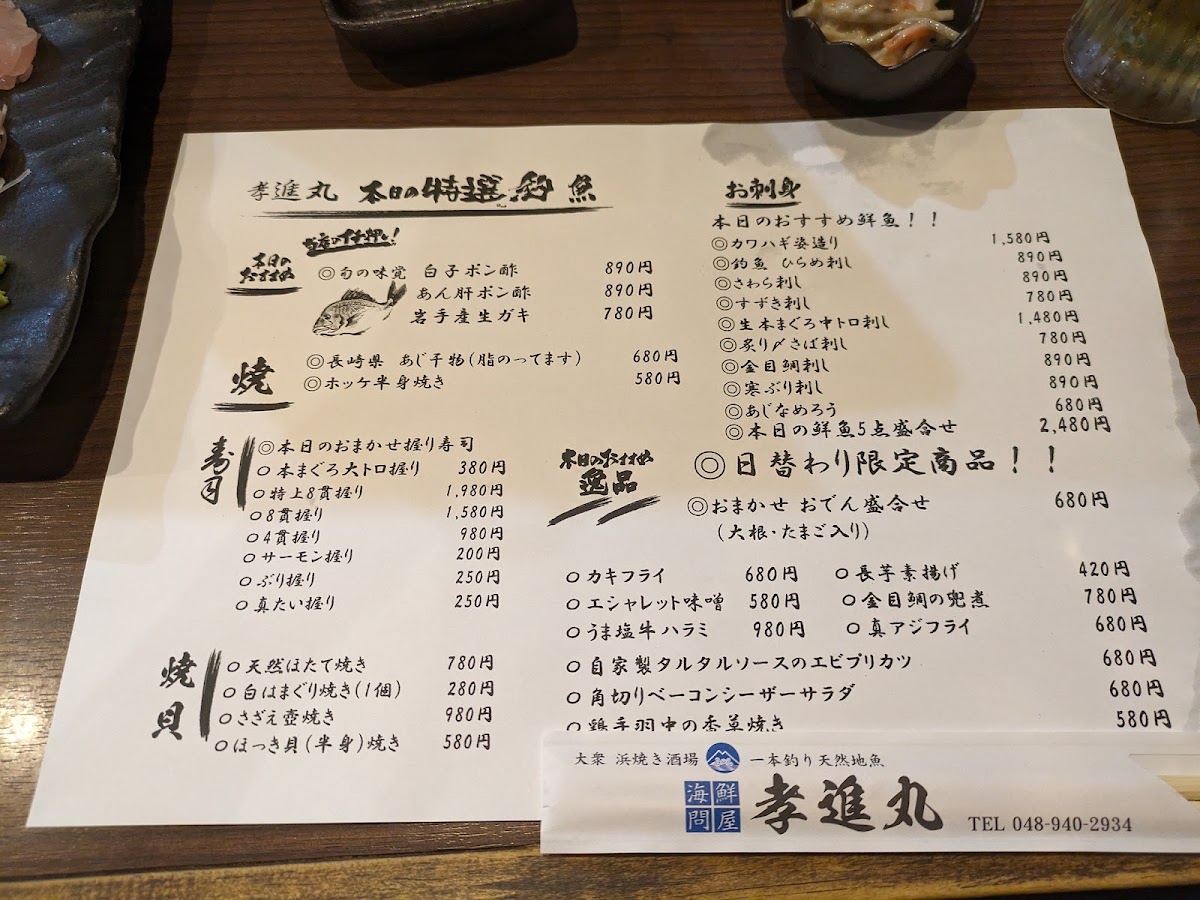 孝進丸 本日の特選釣魚
当店のイチ押し!
本日の
おすすめ
◎旬の味覚 白子ポン酢 890円
あん肝ポン酢 890円
岩手産生ガキ 780円
焼
◎長崎県 あじ干物(脂のってます) 680円
◎ホッケ半身焼き 580円
寿司
◎本日のおまかせ握り寿司
○本まぐろ大トロ握り 380円
○特上8貫握り 1,980円
○8貫握り 1,580円
○4貫握り 980円
○サーモン握り 200円
○ぶり握り 250円
○真たい握り 250円
焼貝
○天然ほたて焼き 780円
○白はまぐり焼き(1個) 280円
○さざえ壺焼き 980円
○ほっき貝(半身)焼き 580円
お刺身
本日のおすすめ鮮魚!!
◎カワハギ姿造り 1,580円
◎釣魚 ひらめ刺し 890円
◎さわら刺し 890円
◎すずき刺し 780円
◎生本まぐろ中トロ刺し 1,480円
◎炙り〆さば刺し 780円
◎金目鯛刺し 890円
◎寒ぶり刺し 890円
◎あじなめろう 680円
◎本日の鮮魚5点盛合せ 2,480円
本日のおすすめ
逸品
◎日替わり限定商品!!
◎おまかせ おでん盛合せ 680円
(大根・たまご入り)
○カキフライ 680円 ○長芋素揚げ 420円
○エシャレット味噌 580円 ○金目鯛の兜煮 780円
○うま塩牛ハラミ 980円 ○真アジフライ 680円
○自家製タルタルソースのエビプリカツ 680円
○角切りベーコンシーザーサラダ 680円
○鶏手羽中の香草焼き 580円
大衆 浜焼き酒場 一本釣り天然地魚
海鮮問屋 孝進丸 TEL 048-940-2934